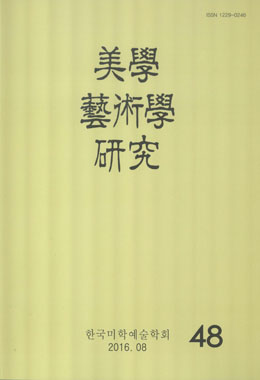 ISSN 1229-0246
美學
藝術學
研究
한국미학예술학회
2016. 08
48